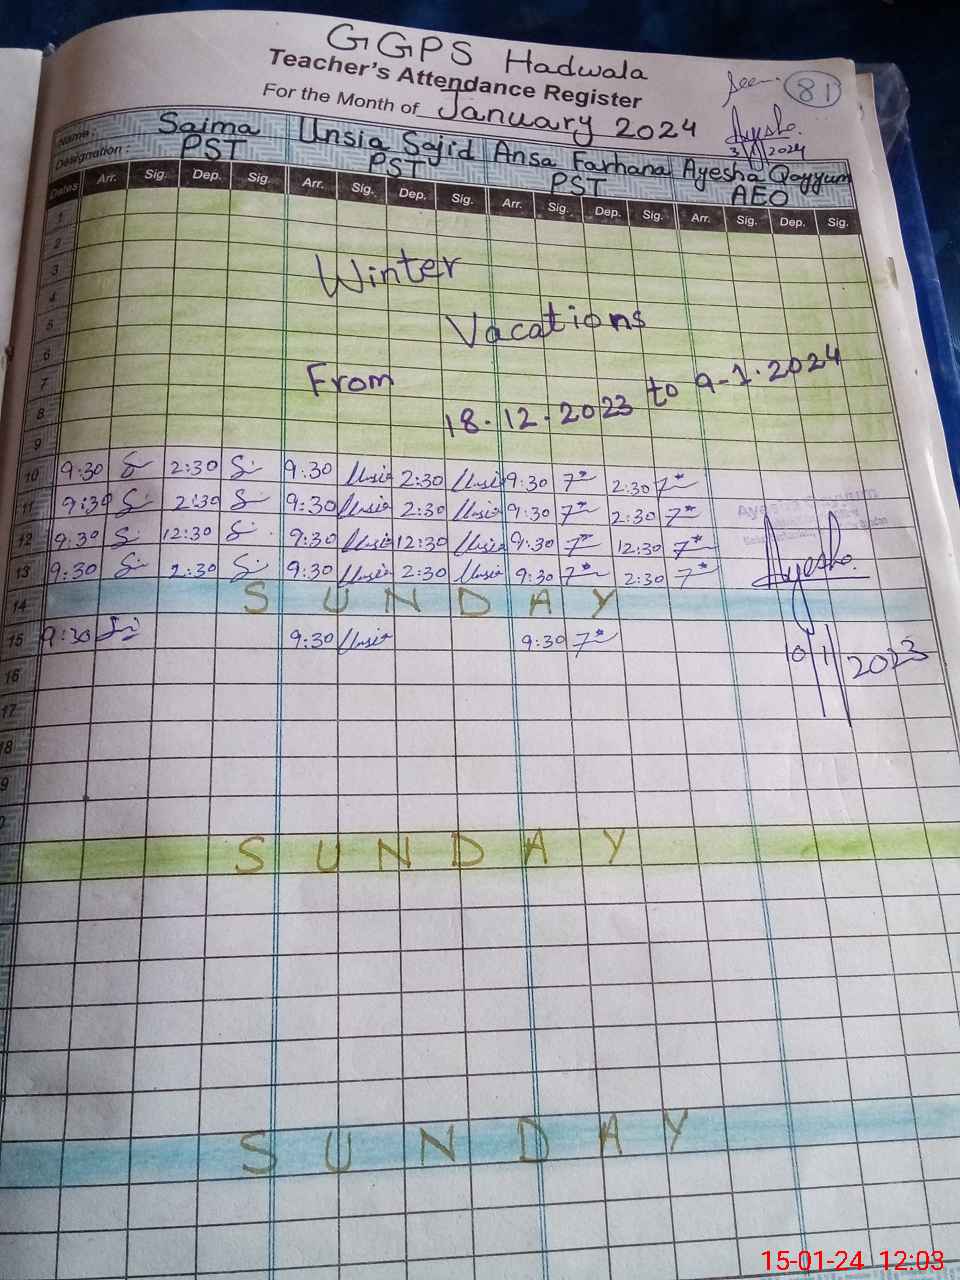 GGPS Hadwala
Teacher's Attendance Register
For the Month of January 2024
Seen
81
Ayesha
3/1/2024
Name : Saima Unsia Sajid Ansa Farhana Ayesha Qayyum
Designation : PST PST PST AEO
Dates Arr. Sig. Dep. Sig. Arr. Sig. Dep. Sig. Arr. Sig. Dep. Sig. Arr. Sig. Dep. Sig.
1
2
3 Winter
4
5 Vacations
6
7 From
8 18.12.2023 to 9-1.2024
9
10 9:30 2:30 9:30 Unsia 2:30 Unsia 9:30 2:30
11 9:30 2:30 9:30 Unsia 2:30 Unsia 9:30 2:30
12 9:30 12:30 9:30 Unsia 12:30 Unsia 9:30 12:30
13 9:30 2:30 9:30 Unsia 2:30 Unsia 9:30 2:30
Ayesha Qayyum
Ayesha
14 SUNDAY
15 9:30 9:30 Unsia 9:30
10/1/2023
16
17
18
9
SUNDAY
SUNDAY
15-01-24 12:03